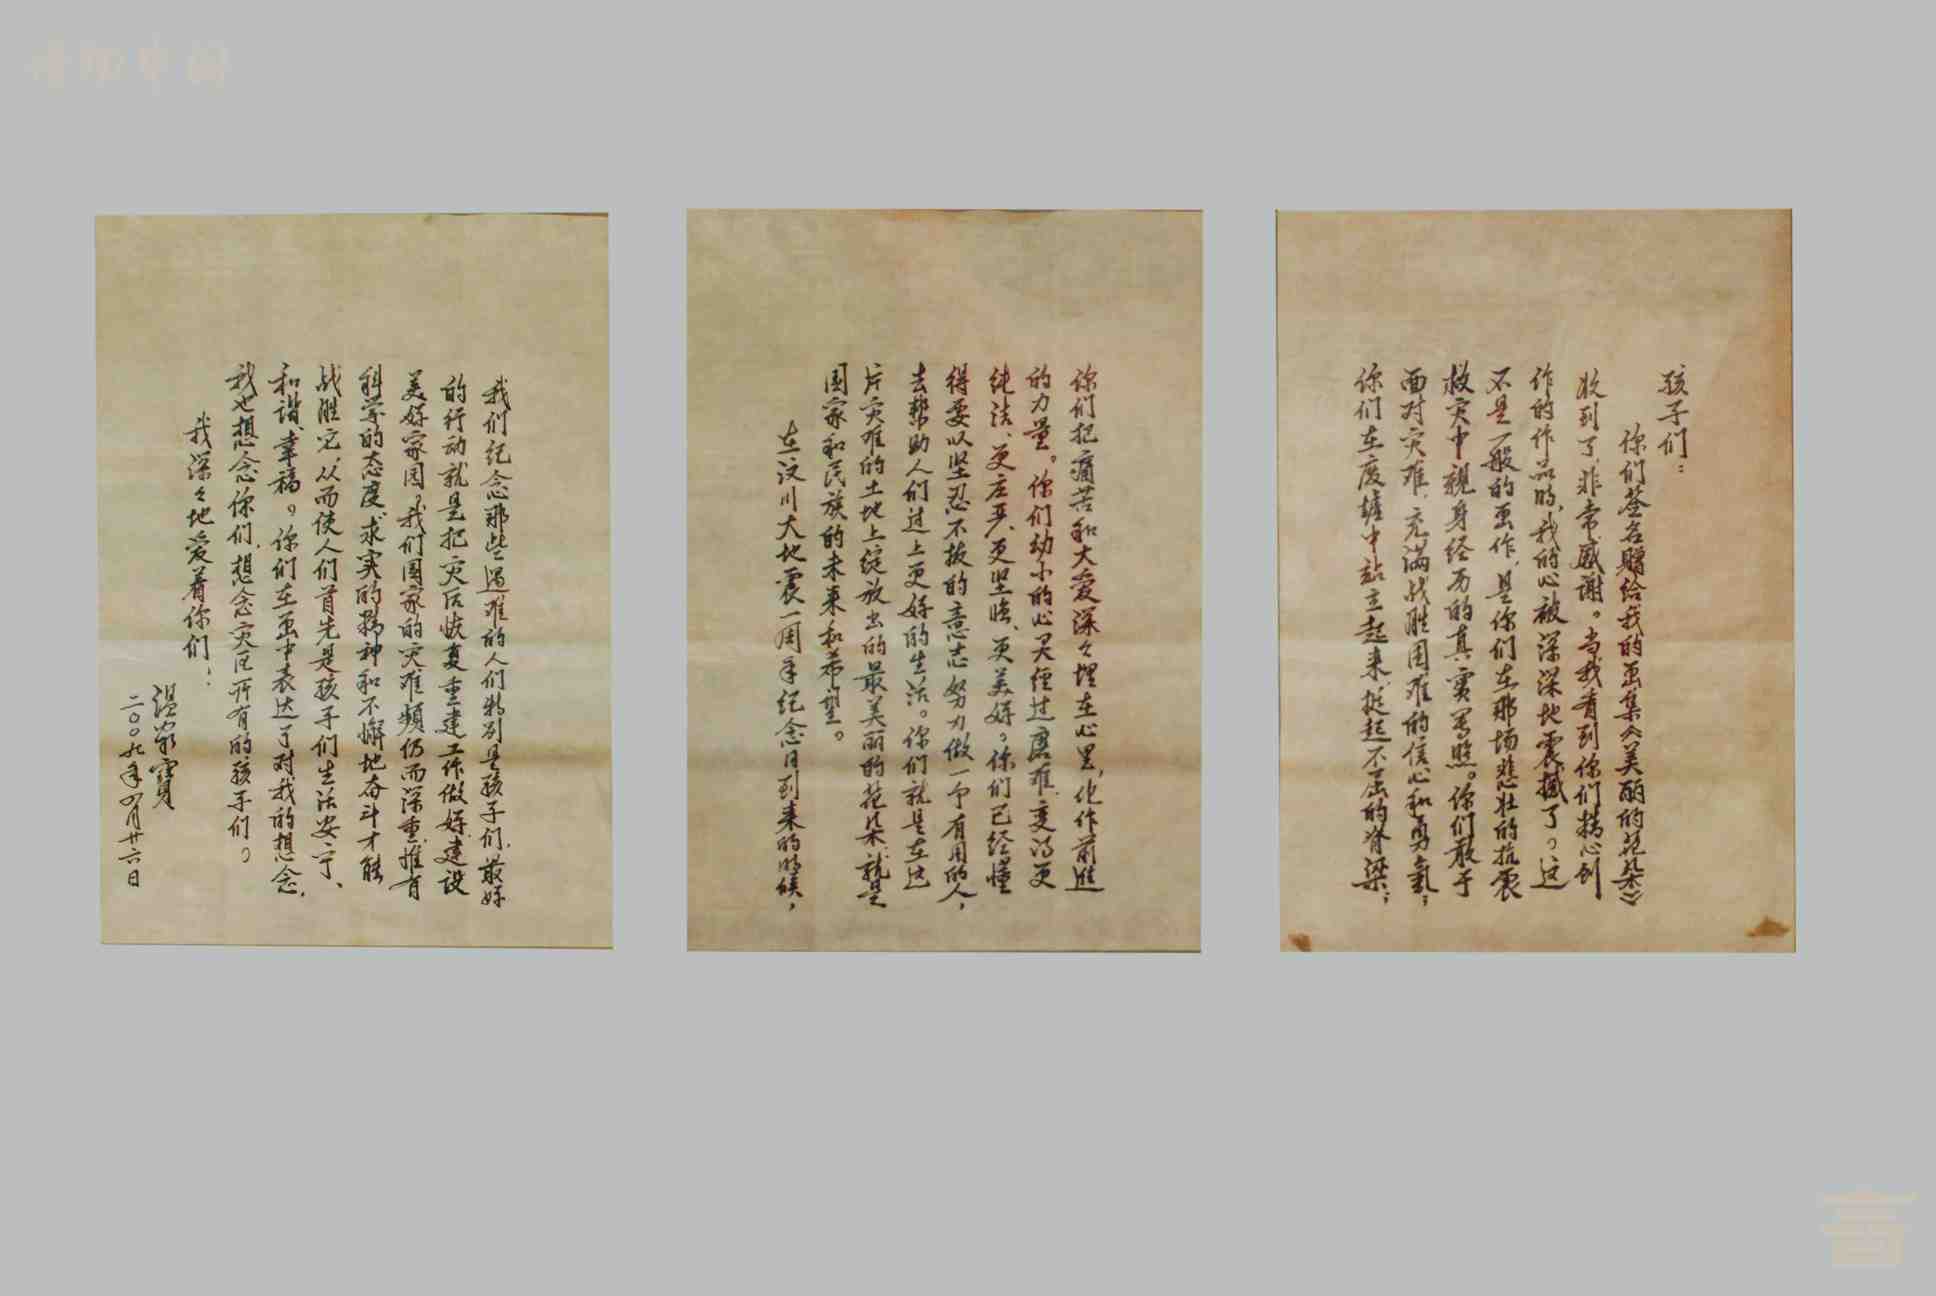 孩子们：
你们签名赠给我的画集《美丽的花朵》
收到了，非常感谢。当我看到你们精心创
作的作品时，我的心被深深地震撼了。这
不是一般的画作，是你们在那场悲壮的抗震
救灾中亲身经历的真实写照。你们敢于
面对灾难，充满战胜困难的信心和勇气；
你们在废墟中站立起来，挺起不屈的脊梁；
你们把痛苦和大爱深々埋在心里，化作前进
的力量。你们幼小的心灵经过磨难，变得更
纯洁、更庄严、更坚强、更美好。你们已经懂
得要以坚忍不拔的意志努力做一个有用的人，
去帮助人们过上更好的生活。你们就是在这
片灾难的土地上绽放出的最美丽的花朵，就是
国家和民族的未来和希望。
在汶川大地震一周年纪念日到来的时候，
我们纪念那些遇难的人们特别是孩子们，最好
的行动就是把灾后恢复重建工作做好，建设
美好家园。我们国家的灾难频仍而深重，惟有
科学的态度、求实的精神和不懈地奋斗才能
战胜它，从而使人们首先是孩子们生活安宁、
和谐、幸福。你们在画中表达了对我的想念，
我也想念你们，想念灾区所有的孩子们。
我深々地爱着你们！
温家宝
二〇〇九年四月廿六日